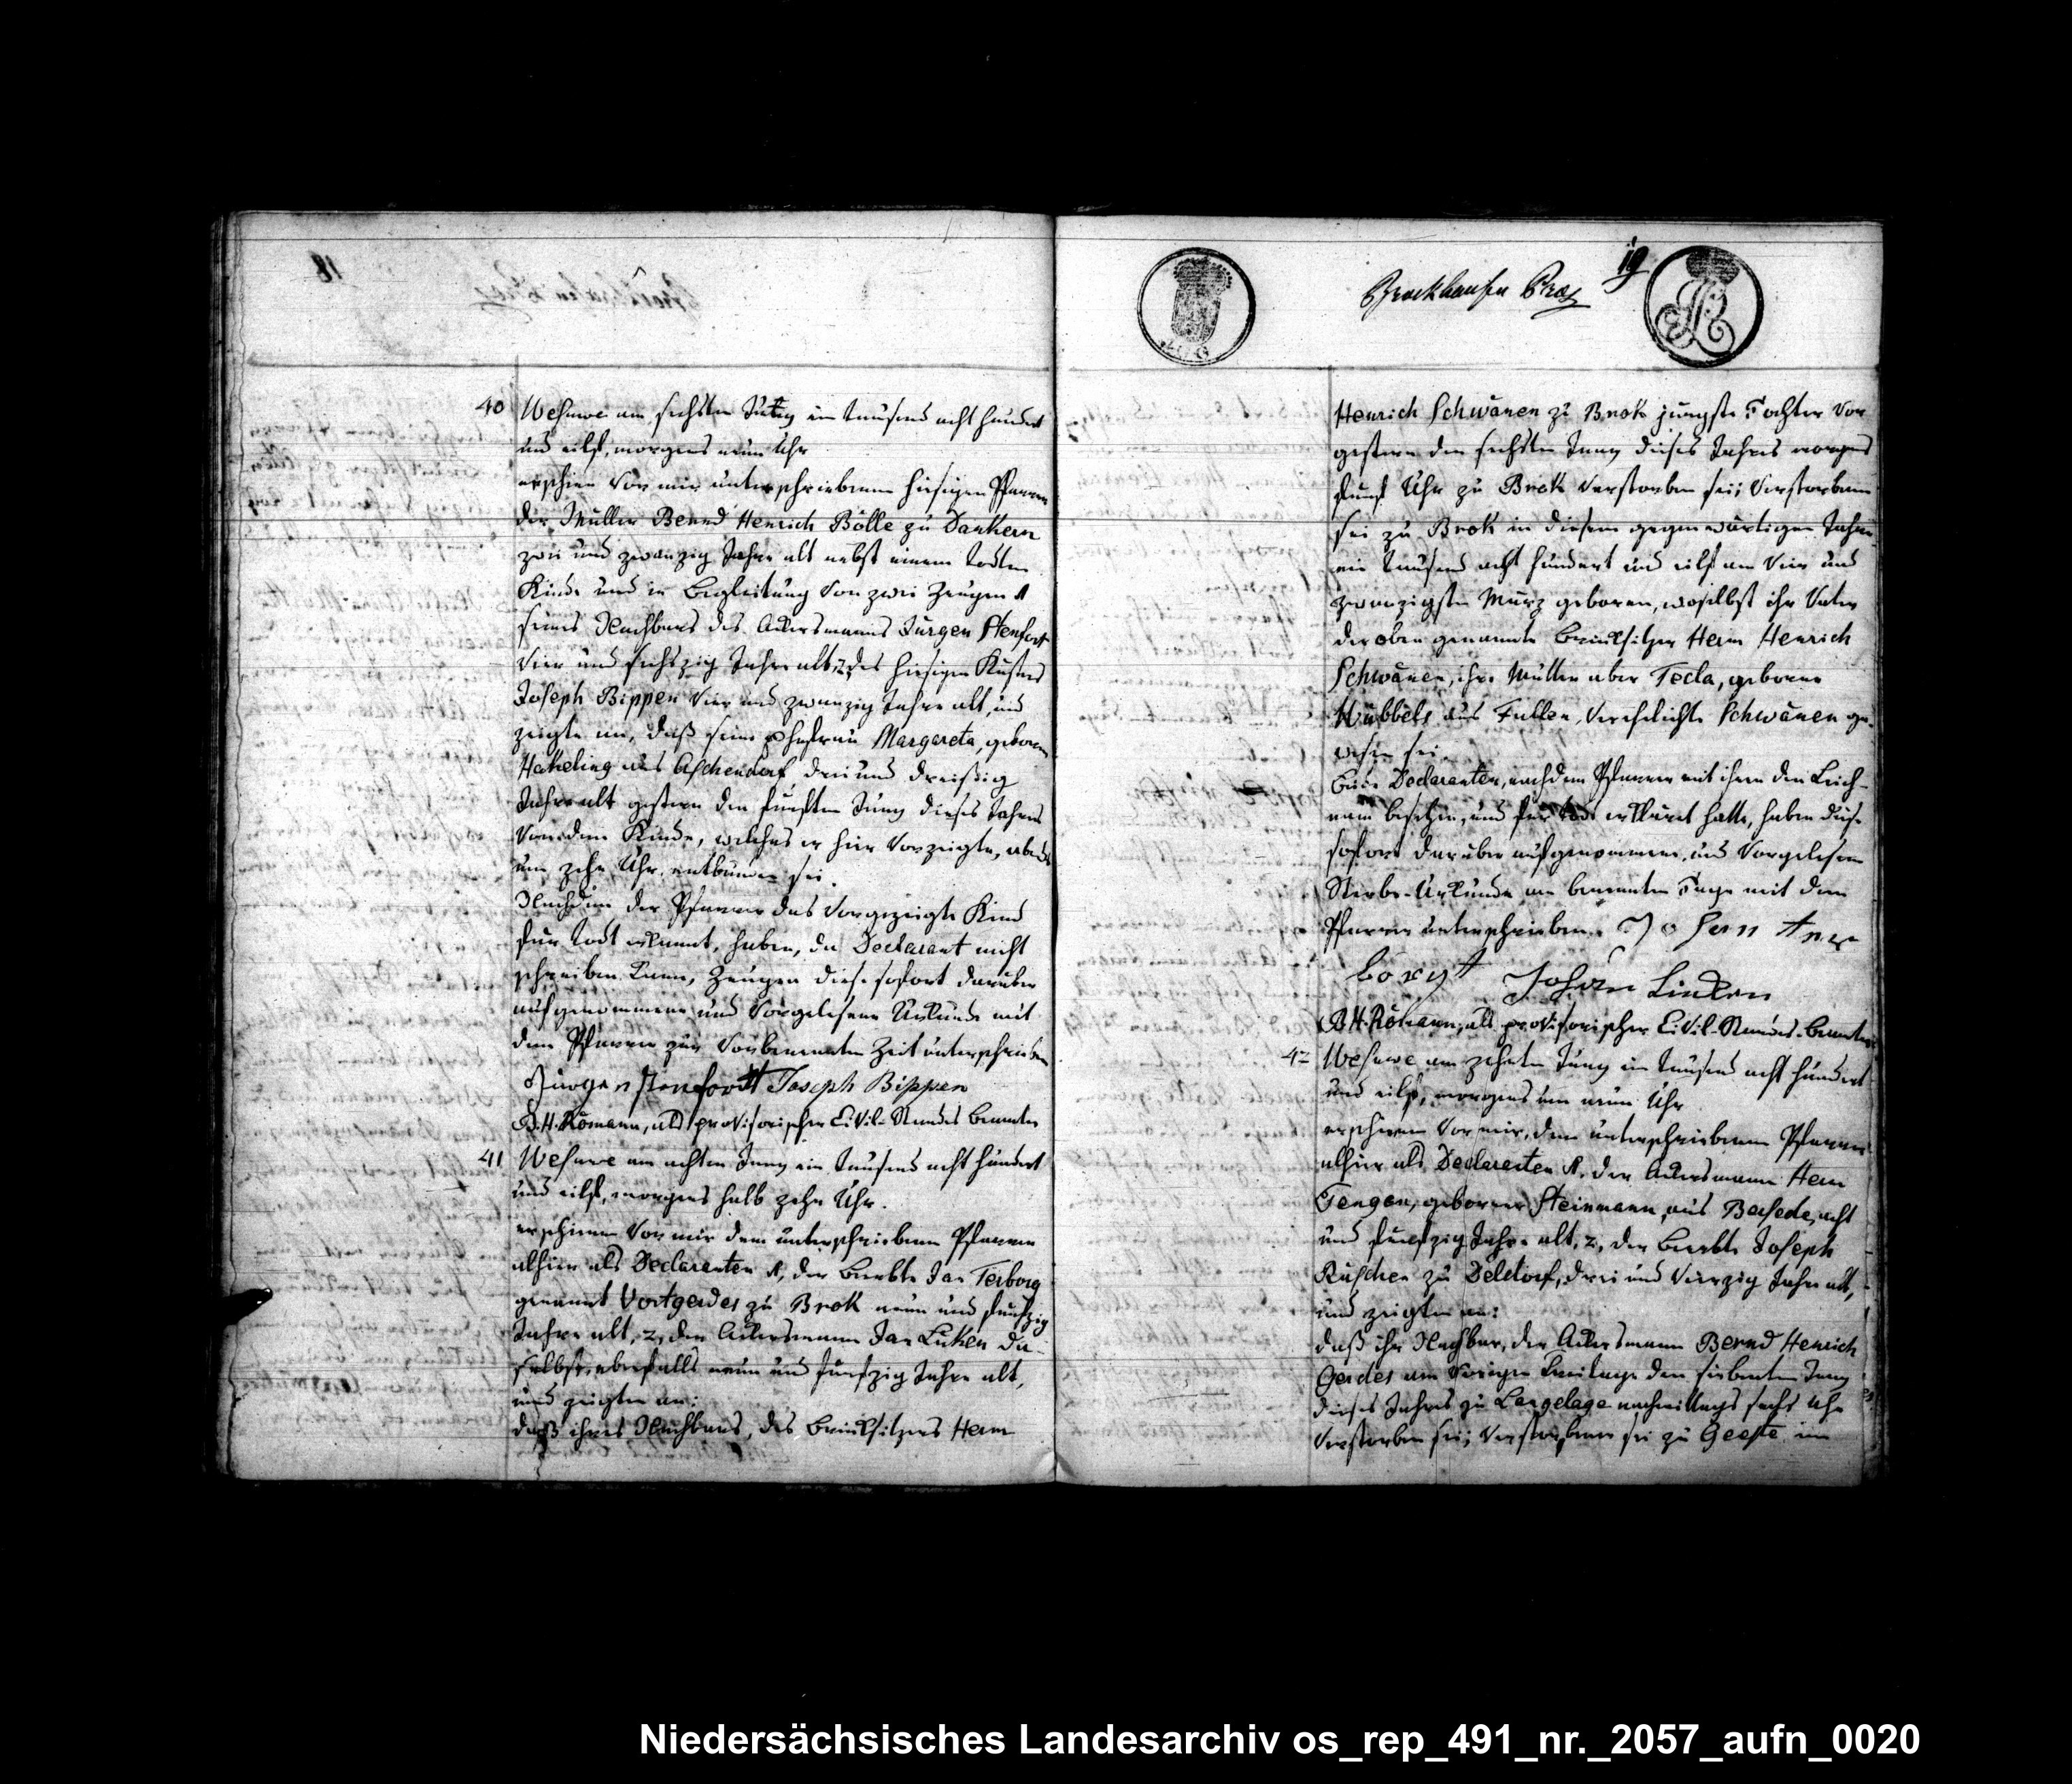 40 Wesuwe am sechsten Juny ein tausend acht hundert
und eilf, morgens neun Uhr
erschien vor mir unterschriebenen hiesigen Pfarrer
der Müller Bernd Henrich Bölle zu Dankern
zwei und zwanzig Jahre alt nebst einem todten
Kinde und in Begleitung von zwei Zeugen 1
seines Nachbars des Ackersmanns Jürgen Stenfort
vier und sechszig Jahre alt, 2, des hiesigen Küsters
Joseph Bippen vier und zwanzig Jahre alt, und
zeigte an, daß seine Ehefrau Margareta, geborne
Hakeling aus Aschendorf drei und dreißig
Jahre alt gestern den fünften Juny dieses Jahres
von dem Kinde, welches er hier vorzeigte, abends
um zehn Uhr, entbunden sei.
Nachdem der Pfarrer das vorgezeigte Kind
für todt erkannt, haben, da Declarant nicht
schreiben kann, Zeugen diese sofort darüber
aufgenommene und vorgelesene Urkunde mit
dem Pfarrer zur vorbenannten Zeit unterschrieben
Jürgen Stenfordt Joseph Bippen
B. H. Römann, als provisorischer Civil-Standes Beamter
41 Wesuwe am achten Juny ein tausend acht hundert
und eilf, morgens halb zehn Uhr.
erschienen vor mir dem unterschriebenen Pfarrer
alhier als Declaranten 1, der Beerbte Jan Terborg
genannt Vortgerdes zu Brok neun und funfzig
Jahre alt, 2, der Ackersmann Jan Lüken da-
selbst, ebenfalls neun und funfzig Jahre alt,
und zeigten an:
daß ihres Nachbars, des Brinksitzers Herm
19
Brockhausen
Henrich Schwänen zu Brok jüngste Tochter vor
gestern den sechsten Juny dieses Jahres morgens
fünf Uhr zu Brok verstorben sei; Verstorbene
sei zu Brok in diesem gegenwärtigen Jahre
ein tausend acht hundert und eilf am vier und
zwanzigsten März geboren, woselbst ihr Vater
der oben genannte Brinksitzer Herm Henrich
Schwänen, ihre Mutter aber Tecla, geborne
Hübbels aus Fullen, verehelichte Schwänen ge-
wesen sei.
Beide Declaranten, nachdem Pfarrer mit ihnen den Leich-
nam besehen, und für todt erkläret hatte, haben diese
sofort darüber aufgenommene, und vorgelesene
Sterbe-Urkunde am benannten Tage mit dem
Pfarrer unterschrieben. Johan ter
borgt Johan Lüken
B. H. Römann, als provisorischer Civil-Standes-Beamter
42 Wesuwe am zehnten Juny ein tausend acht hundert
und eilf, morgens um neun Uhr
erschienen vor mir, dem unterschriebenen Pfarrer
alhier als Declaranten 1, der Ackersmann Herm
Tengen, geborner Steinmann, aus Bersede, acht
und funfzig Jahre alt, 2, der Beerbte Joseph
Rüschen zu Deldorf, drei und vierzig Jahre alt,
und zeigten an:
daß ihr Nachbar, der Ackersmann Bernd Henrich
Gerdes am vorigen Freitage den siebenten Juny
dieses Jahres zu Langelage nachmittags sechs Uhr
verstorben sei; Verstorbener sei zu Geeste im
Niedersächsisches Landesarchiv os_rep_491_nr._2057_aufn_0020